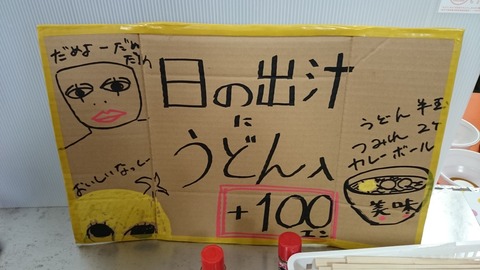 だめよーだめ
だめ
日の出汁
に
うどん入
+100
エン
おいしいなっしー
うどん 半玉
つみれ 2ヶ
カレーボール
美味